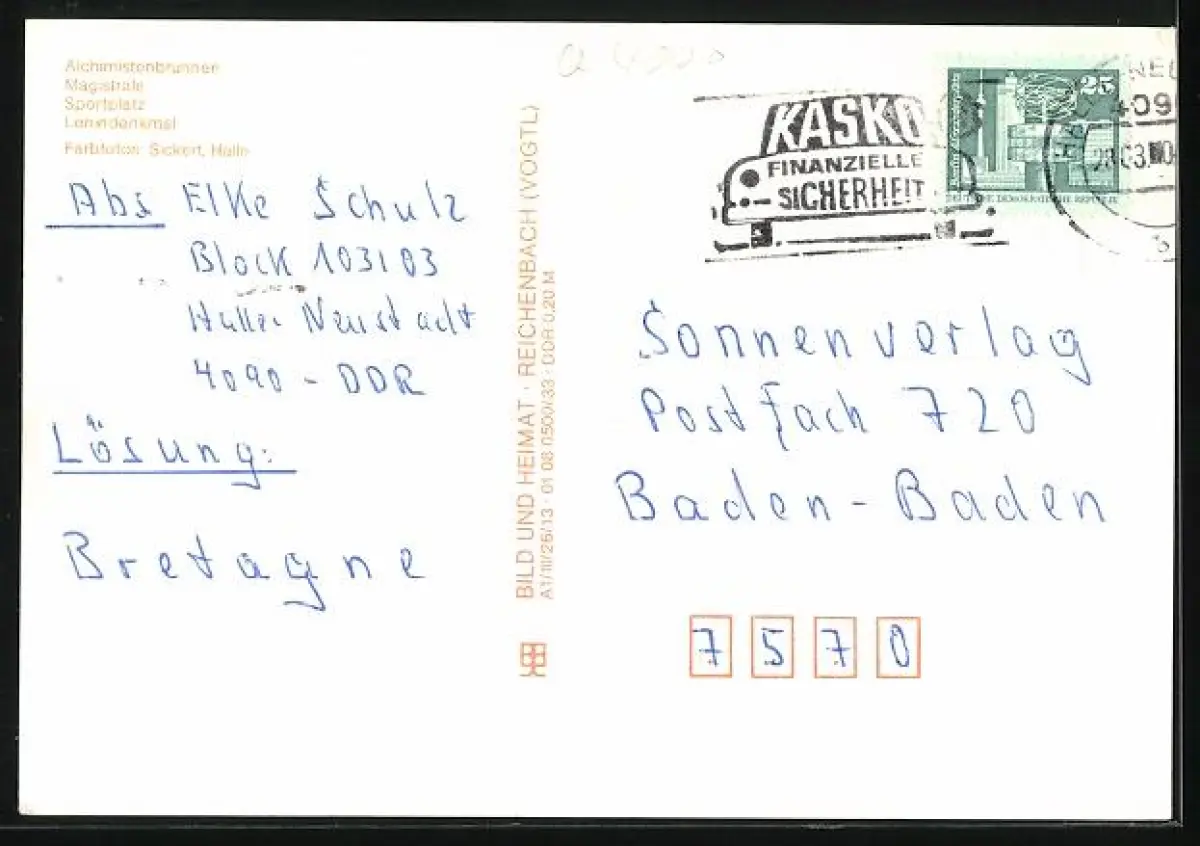 Alchimistenbrunnen
Magistrale
Sportplatz
Lenindenkmal
Farbfotos: Sickert, Halle
Abs Elke Schulz
Block 103103
Halle-Neustadt
4090 - DDR
Lösung:
Bretagne
BILD UND HEIMAT · REICHENBACH (VOGTL)
A1/III/26/13 · 01 08 0500/33 · DDR 0,20 M
KASKO
FINANZIELLE
SICHERHEIT
25
DEUTSCHE DEMOKRATISCHE REPUBLIK
409
Sonnenverlag
Postfach 720
Baden-Baden
7570